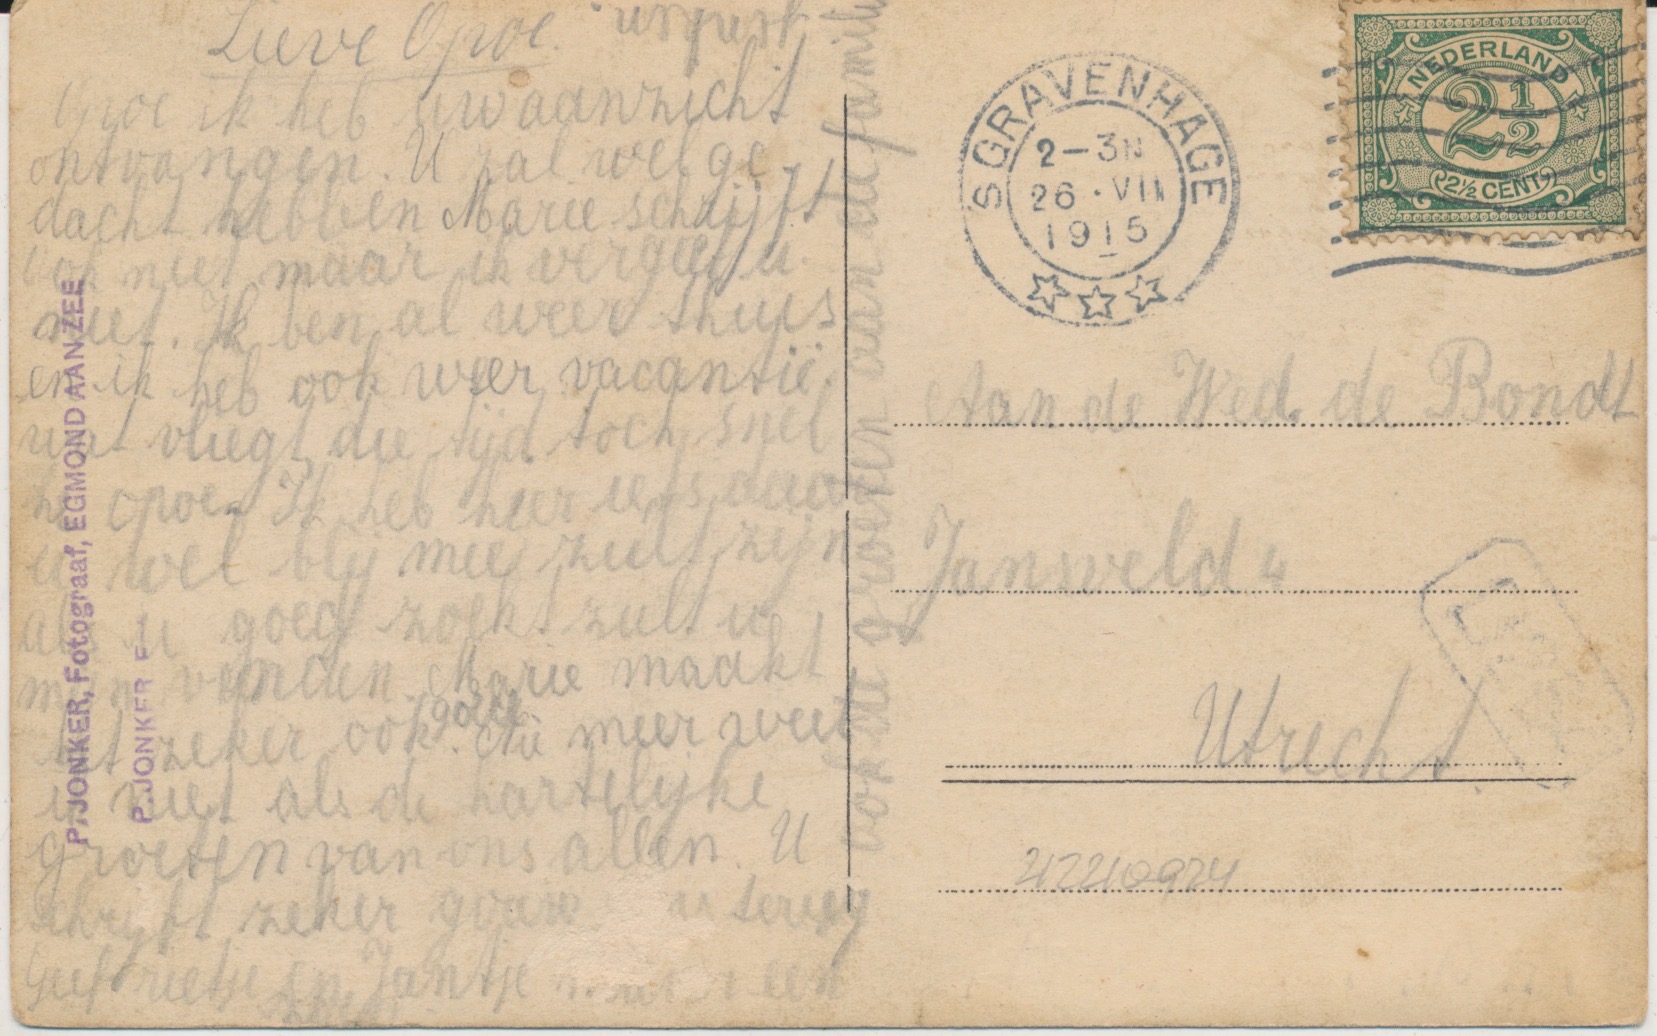 Lieve Opoe.
Opoe ik heb uw aanzicht
ontvangen. U zal wel ge-
dacht hebben Marie schrijft
ook niet maar ik vergeet u
niet. Ik ben al weer thuis
en ik heb ook weer vacantië.
wat vliegt die tijd toch snel
hé opoe. Ik heb hier iets daar
u wel blij mee zult zijn
als u goed zoekt zult u
vinden. Marie maakt
het zeker ook goed. Nu meer weet
u niet als de hartelijke
groeten van ons allen. U
schrijft zeker gauw terug
Geef Rietje en Jantje een
zoen
ook de groeten aan de familie
P. JONKER, Fotograaf, EGMOND AAN ZEE
P. JONKER F
'S GRAVENHAGE
2-3N
26 · VII
1915
NEDERLAND
2½
2½ CENT
Aan de Wed. de Bondt
Jansveld 4
Utrecht